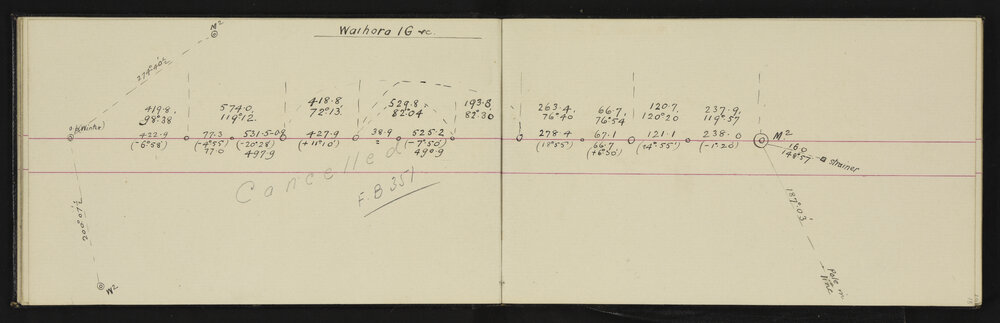 Waihora 1G &c.
M²
274°40½'
419.8. 574.0. 418.8 529.8 193.8 263.4. 66.7. 120.7. 237.9.
98°38 119°12. 72°13' 82°04 82°30 76°40 76°54 120°20 119°57
422.9 77.3 531.5-09 427.9 38.9 525.2 278.4 67.1 121.1 238.0 M²
(-6°58) (-4°55') (-20°28) (+11°10') (-7°50') (18°55') 66.7 (+4°55') (-1°20')
77.0 497.9 490.9 (+6°30')
16.0
148°57
strainer
Cancelled
F.B 351
200°07½'
187°03'
M²
Pole in
line